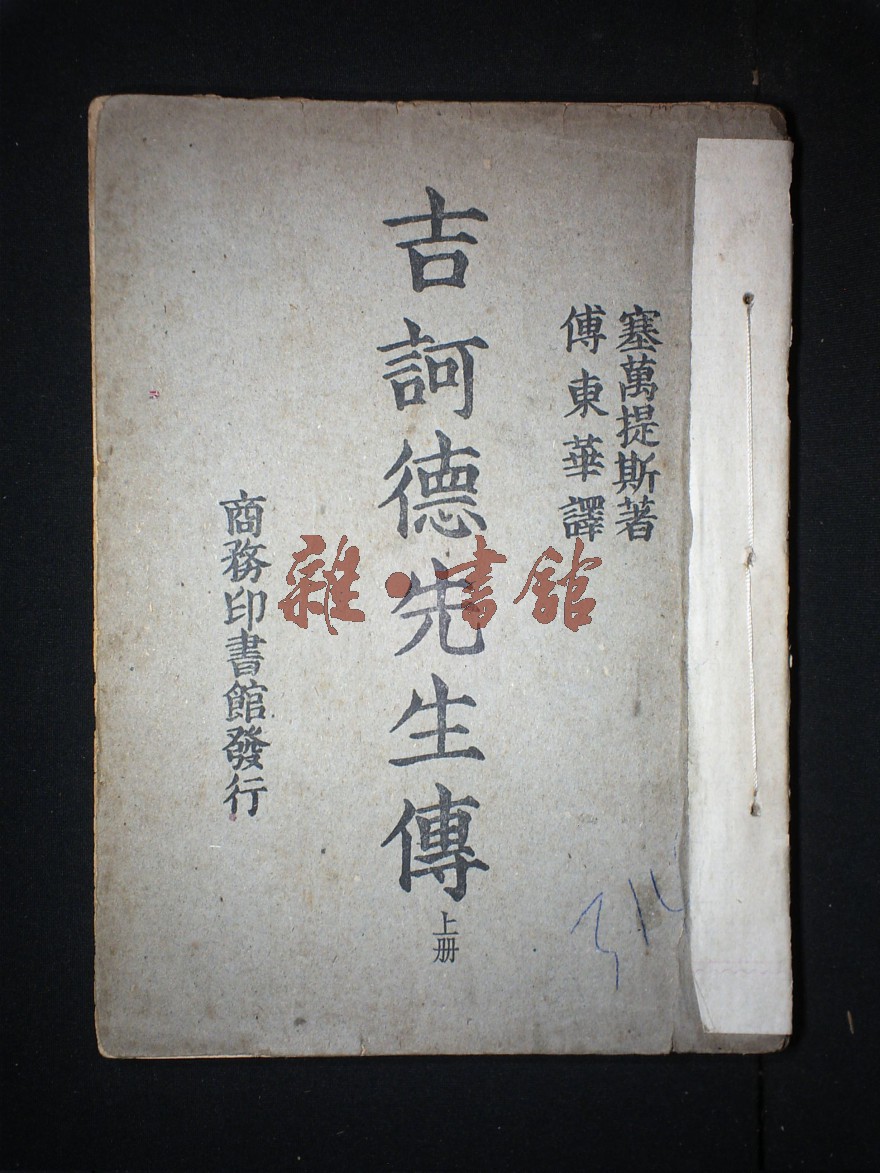 塞萬提斯著
傅東華譯
吉訶德先生傳
上册
商務印書館發行
雜·書館